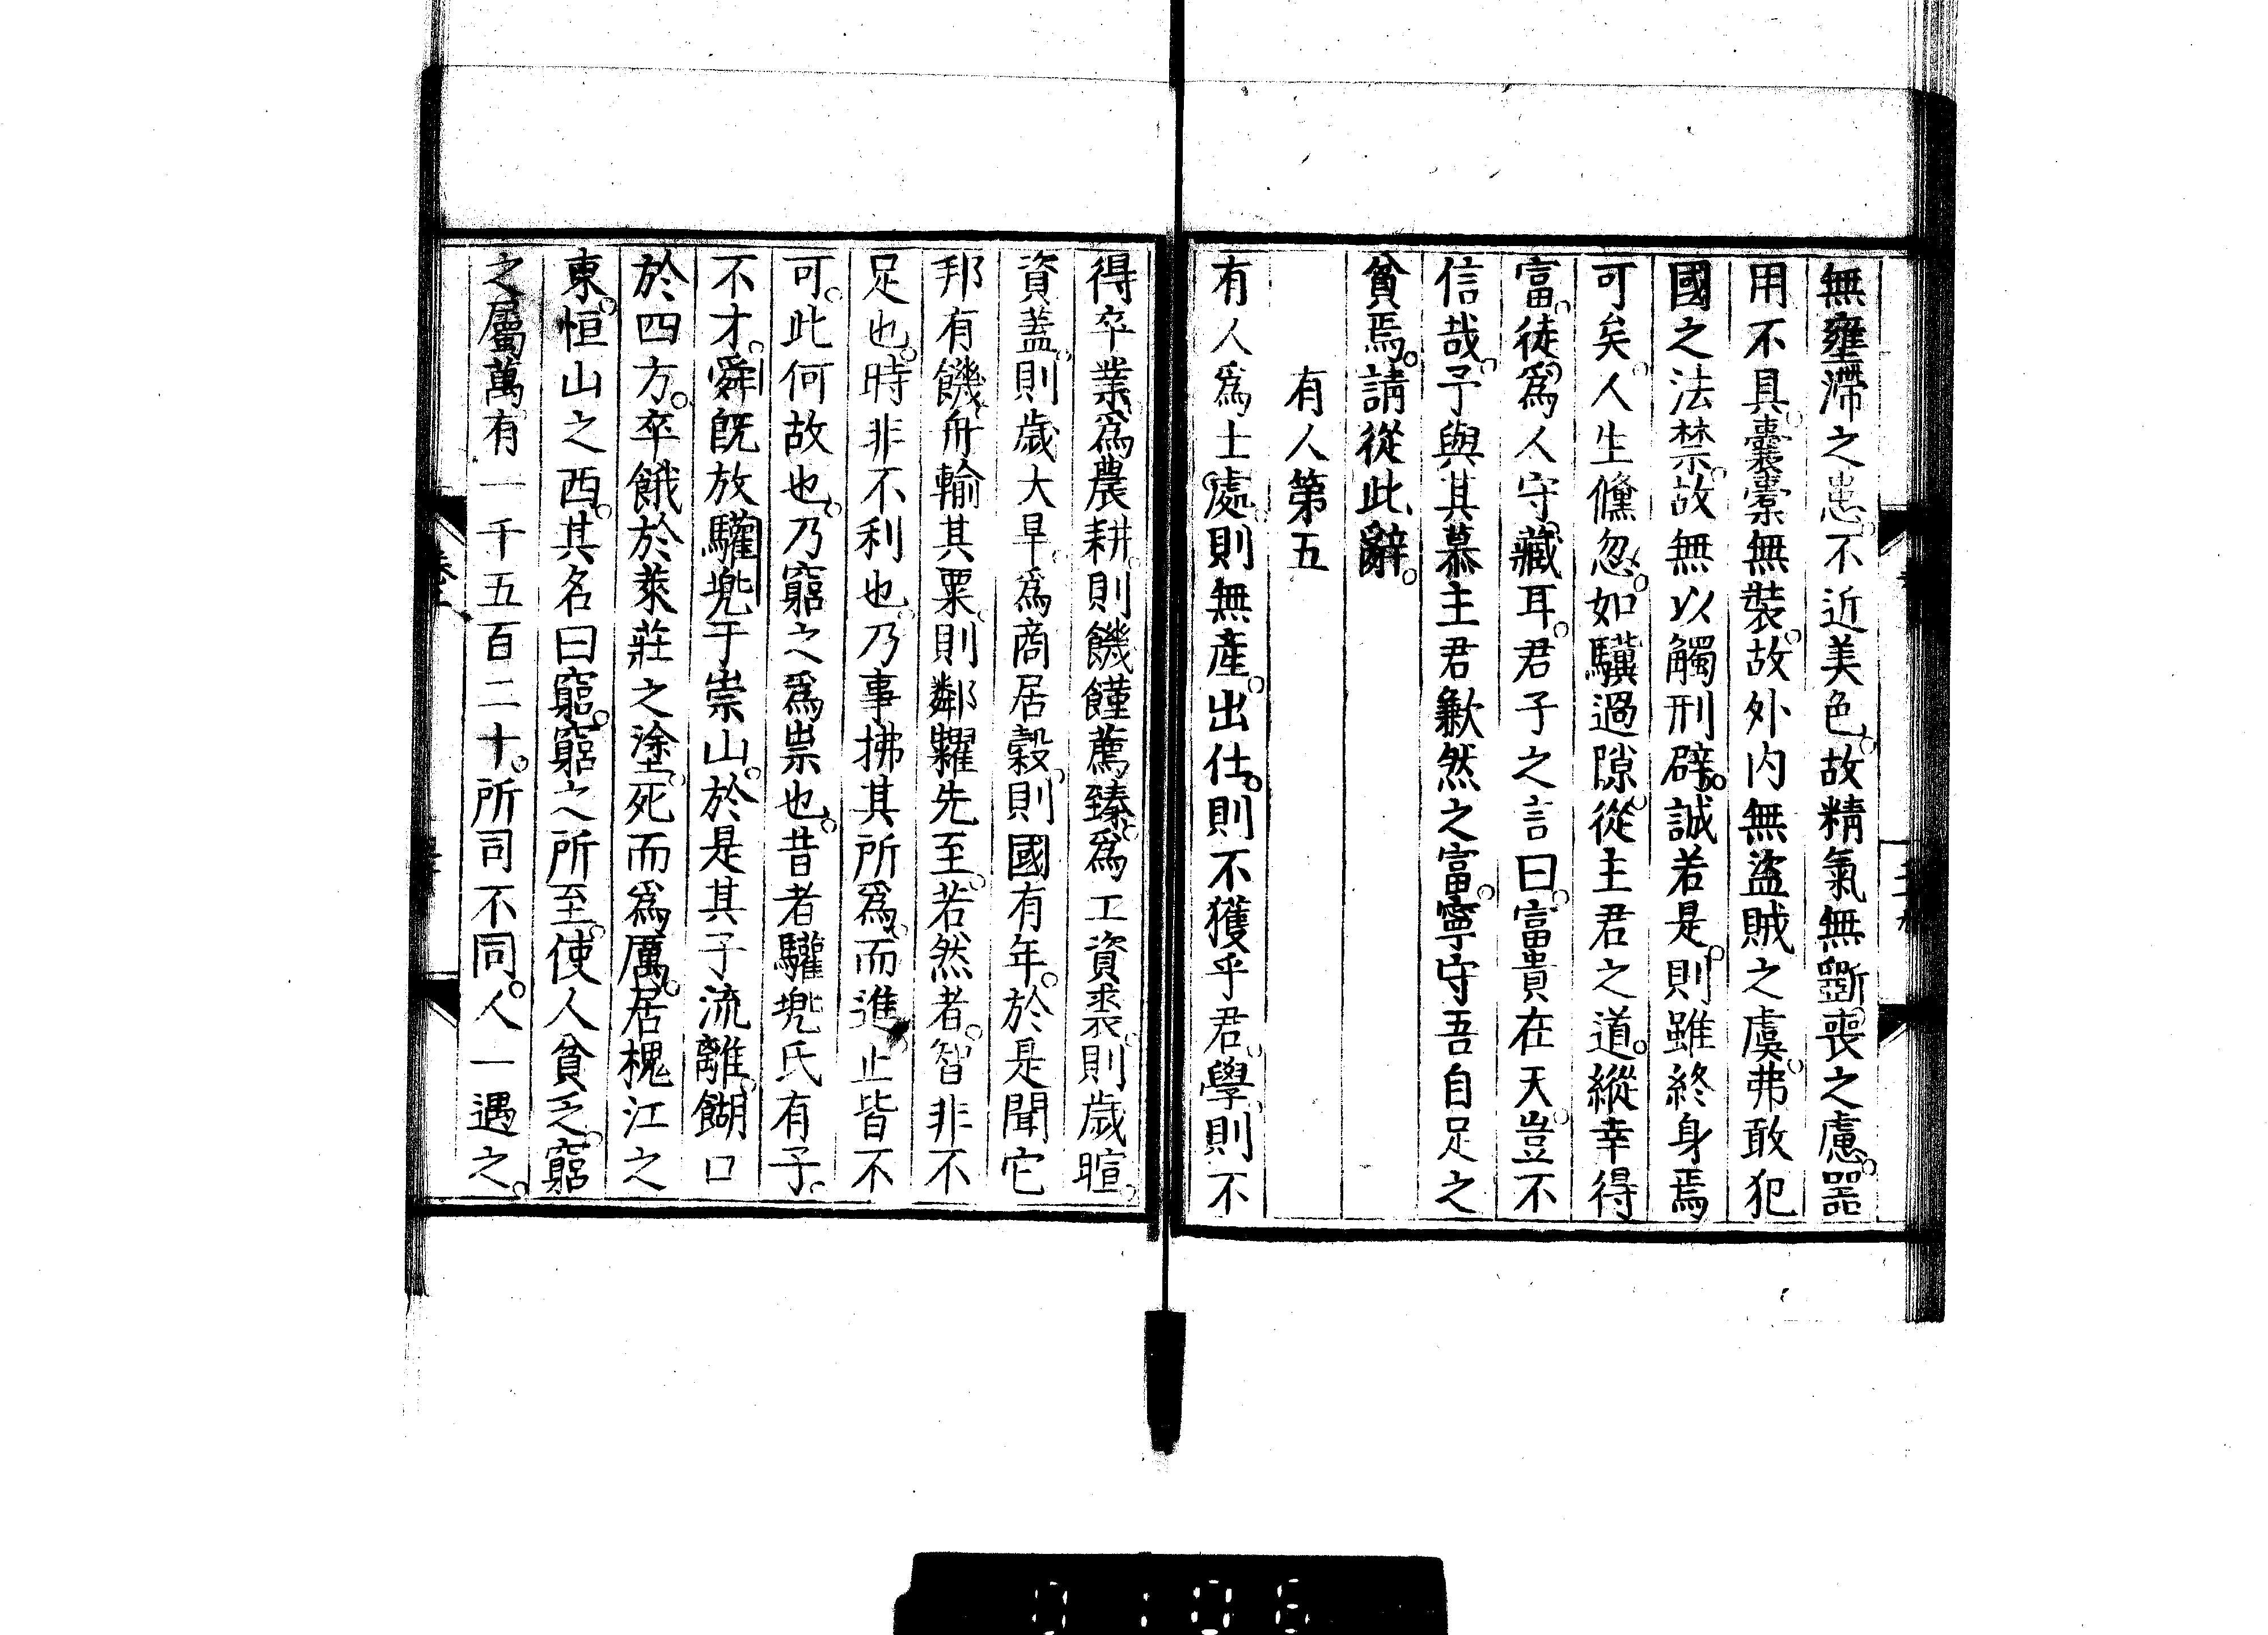 無壅滯之患不近美色故精氣無斵喪之慮器
用不具囊橐無裝故外内無盜賊之虞弗敢犯
國之法禁故無以觸刑辟誠若是則雖終身焉
可矣人生儵忽如驥過隙從主君之道縱幸得
富徒爲人守藏耳君子之言曰富貴在天豈不
信哉予與其慕主君歉然之富寧守吾自足之
貧焉請從此辭
有人第五
有人爲士處則無產出仕則不獲乎君學則不
得卒業爲農耕則饑饉薦臻爲工資裘則歲暄
資蓋則歲大旱爲商居穀則國有年於是聞它
邦有饑舟輸其粟則鄰糶先至若然者智非不
足也時非不利也乃事拂其所爲而進止皆不
可此何故也乃竆之爲祟也昔者驩兠氏有子
不才舜既放驩兠于崇山於是其子流離餬口
於四方卒餓於萊莊之塗死而爲厲居槐江之
東恒山之西其名曰竆竆之所至使人貧乏竆
之屬萬有一千五百二十所司不同人一遇之